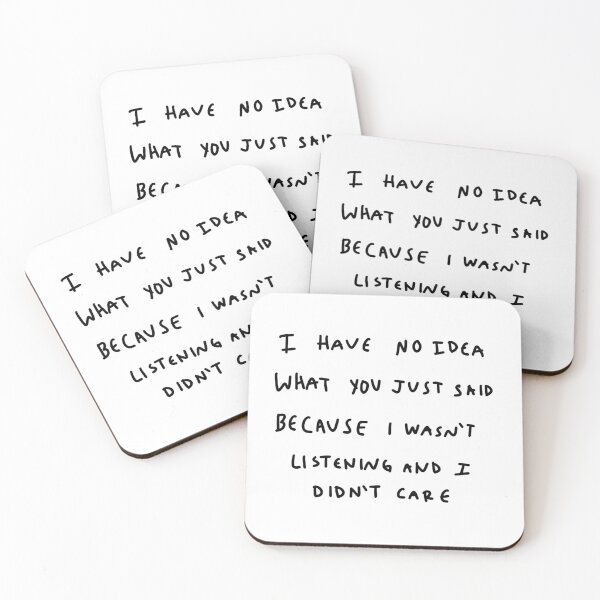 I HAVE NO IDEA
WHAT YOU JUST SAID
I HAVE NO IDEA
WHAT YOU JUST SAID
BECAUSE I WASN'T
LISTENING AND I
I HAVE NO IDEA
WHAT YOU JUST SAID
BECAUSE I WASN'T
LISTENING
DIDN'T
I HAVE NO IDEA
WHAT YOU JUST SAID
BECAUSE I WASN'T
LISTENING AND I
DIDN'T CARE